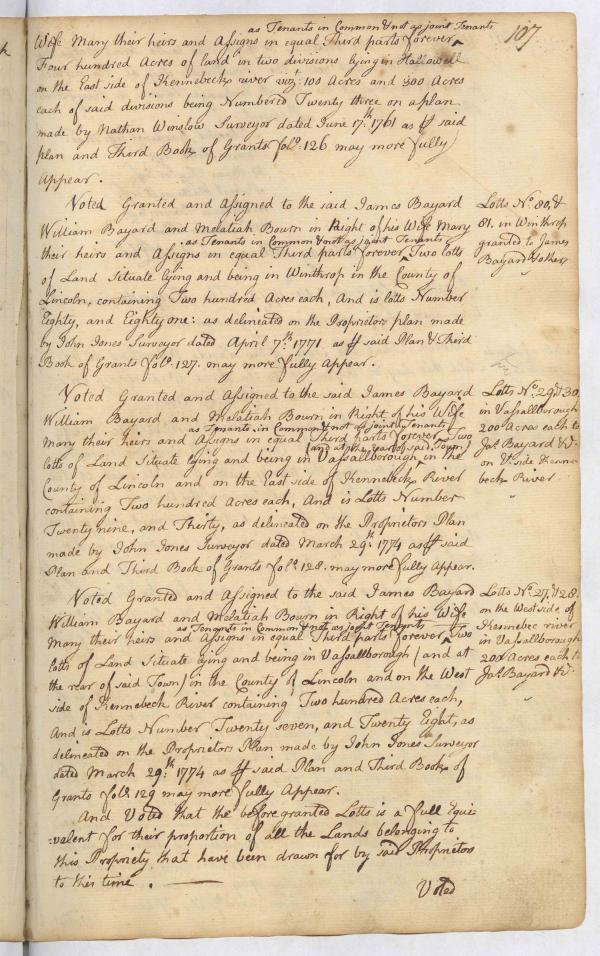 107
as Tenants in Common & not as joint Tenants
Wife Mary their heirs and Assigns in equal Third parts forever
Four hundred Acres of land in two divisions lying in Hallowell
on the East side of Kennebeck river viz.t 100 Acres and 300 Acres
each of said divisions being Numbered Twenty three on a plan
made by Nathan Winslow Surveyor dated June 17.th 1761 as ℔ said
plan and Third Book of Grants fol.o 126 may more fully
Appear.
Voted Granted and Assigned to the said James Bayard
William Bayard and Melatiah Bourn in Right of his Wife Mary
as Tenants in Common & not as joint Tenants
their heirs and Assigns in equal Third parts forever Two lotts
of Land Situate lying and being in Winthrop in the County of
Lincoln, containing Two hundred Acres each, And is lotts Number
Eighty, and Eighty one: as delineated on the Proprietors plan made
by John Jones Surveyor dated April 7.th 1771 as ℔ said Plan & Third
Book of Grants fol.o 127. may more fully Appear.
Lotts N.o 80, &
81. in Winthrop
granted to James
Bayard & others
Voted Granted and Assigned to the said James Bayard
William Bayard and Melatiah Bourn in Right of his Wife
as Tenants in Common & not as joint Tenants
Mary their heirs and Assigns in equal Third parts forever Two
(and at the rear of said Town)
lotts of Land Situate lying and being in Vassallborough, in the
County of Lincoln and on the East side of Kennebeck River
containing Two hundred Acres each, And is Lotts Number
Twenty nine, and Thirty, as delineated on the Proprietors Plan
made by John Jones Surveyor dated March 29.th 1774 as ℔ said
Plan and Third Book of Grants fol.o 128. may more fully Appear.
Lotts N.o 29 & 30,
in Vassallborough
200 Acres each to
Ja.s Bayard &c.
on side Kenne-
beck River
Voted Granted and Assigned to the said James Bayard
William Bayard and Melatiah Bourn in Right of his Wife
as Tenants in Common & not as joint Tenants
Mary their heirs and Assigns in equal Third parts forever Two
lotts of Land Situate lying and being in Vassallborough (and at
the rear of said Town) in the County of Lincoln and on the West
side of Kennebeck River containing Two hundred Acres each,
And is Lotts Number Twenty seven, and Twenty Eight, as
delineated on the Proprietors Plan made by John Jones Surveyor
dated March 29.th 1774 as ℔ said Plan and Third Book of
Grants fol.o 129 may more fully Appear.
Lotts N.o 27, & 28.
on the West side of
Kennebec river
in Vassallborough
200 Acres each to
Ja.s Bayard &c.
And Voted that the before granted Lotts is a full Equi-
valent for their proportion of all the Lands belonging to
this Propriety that have been drawn for by said Proprietors
to this time.
Voted